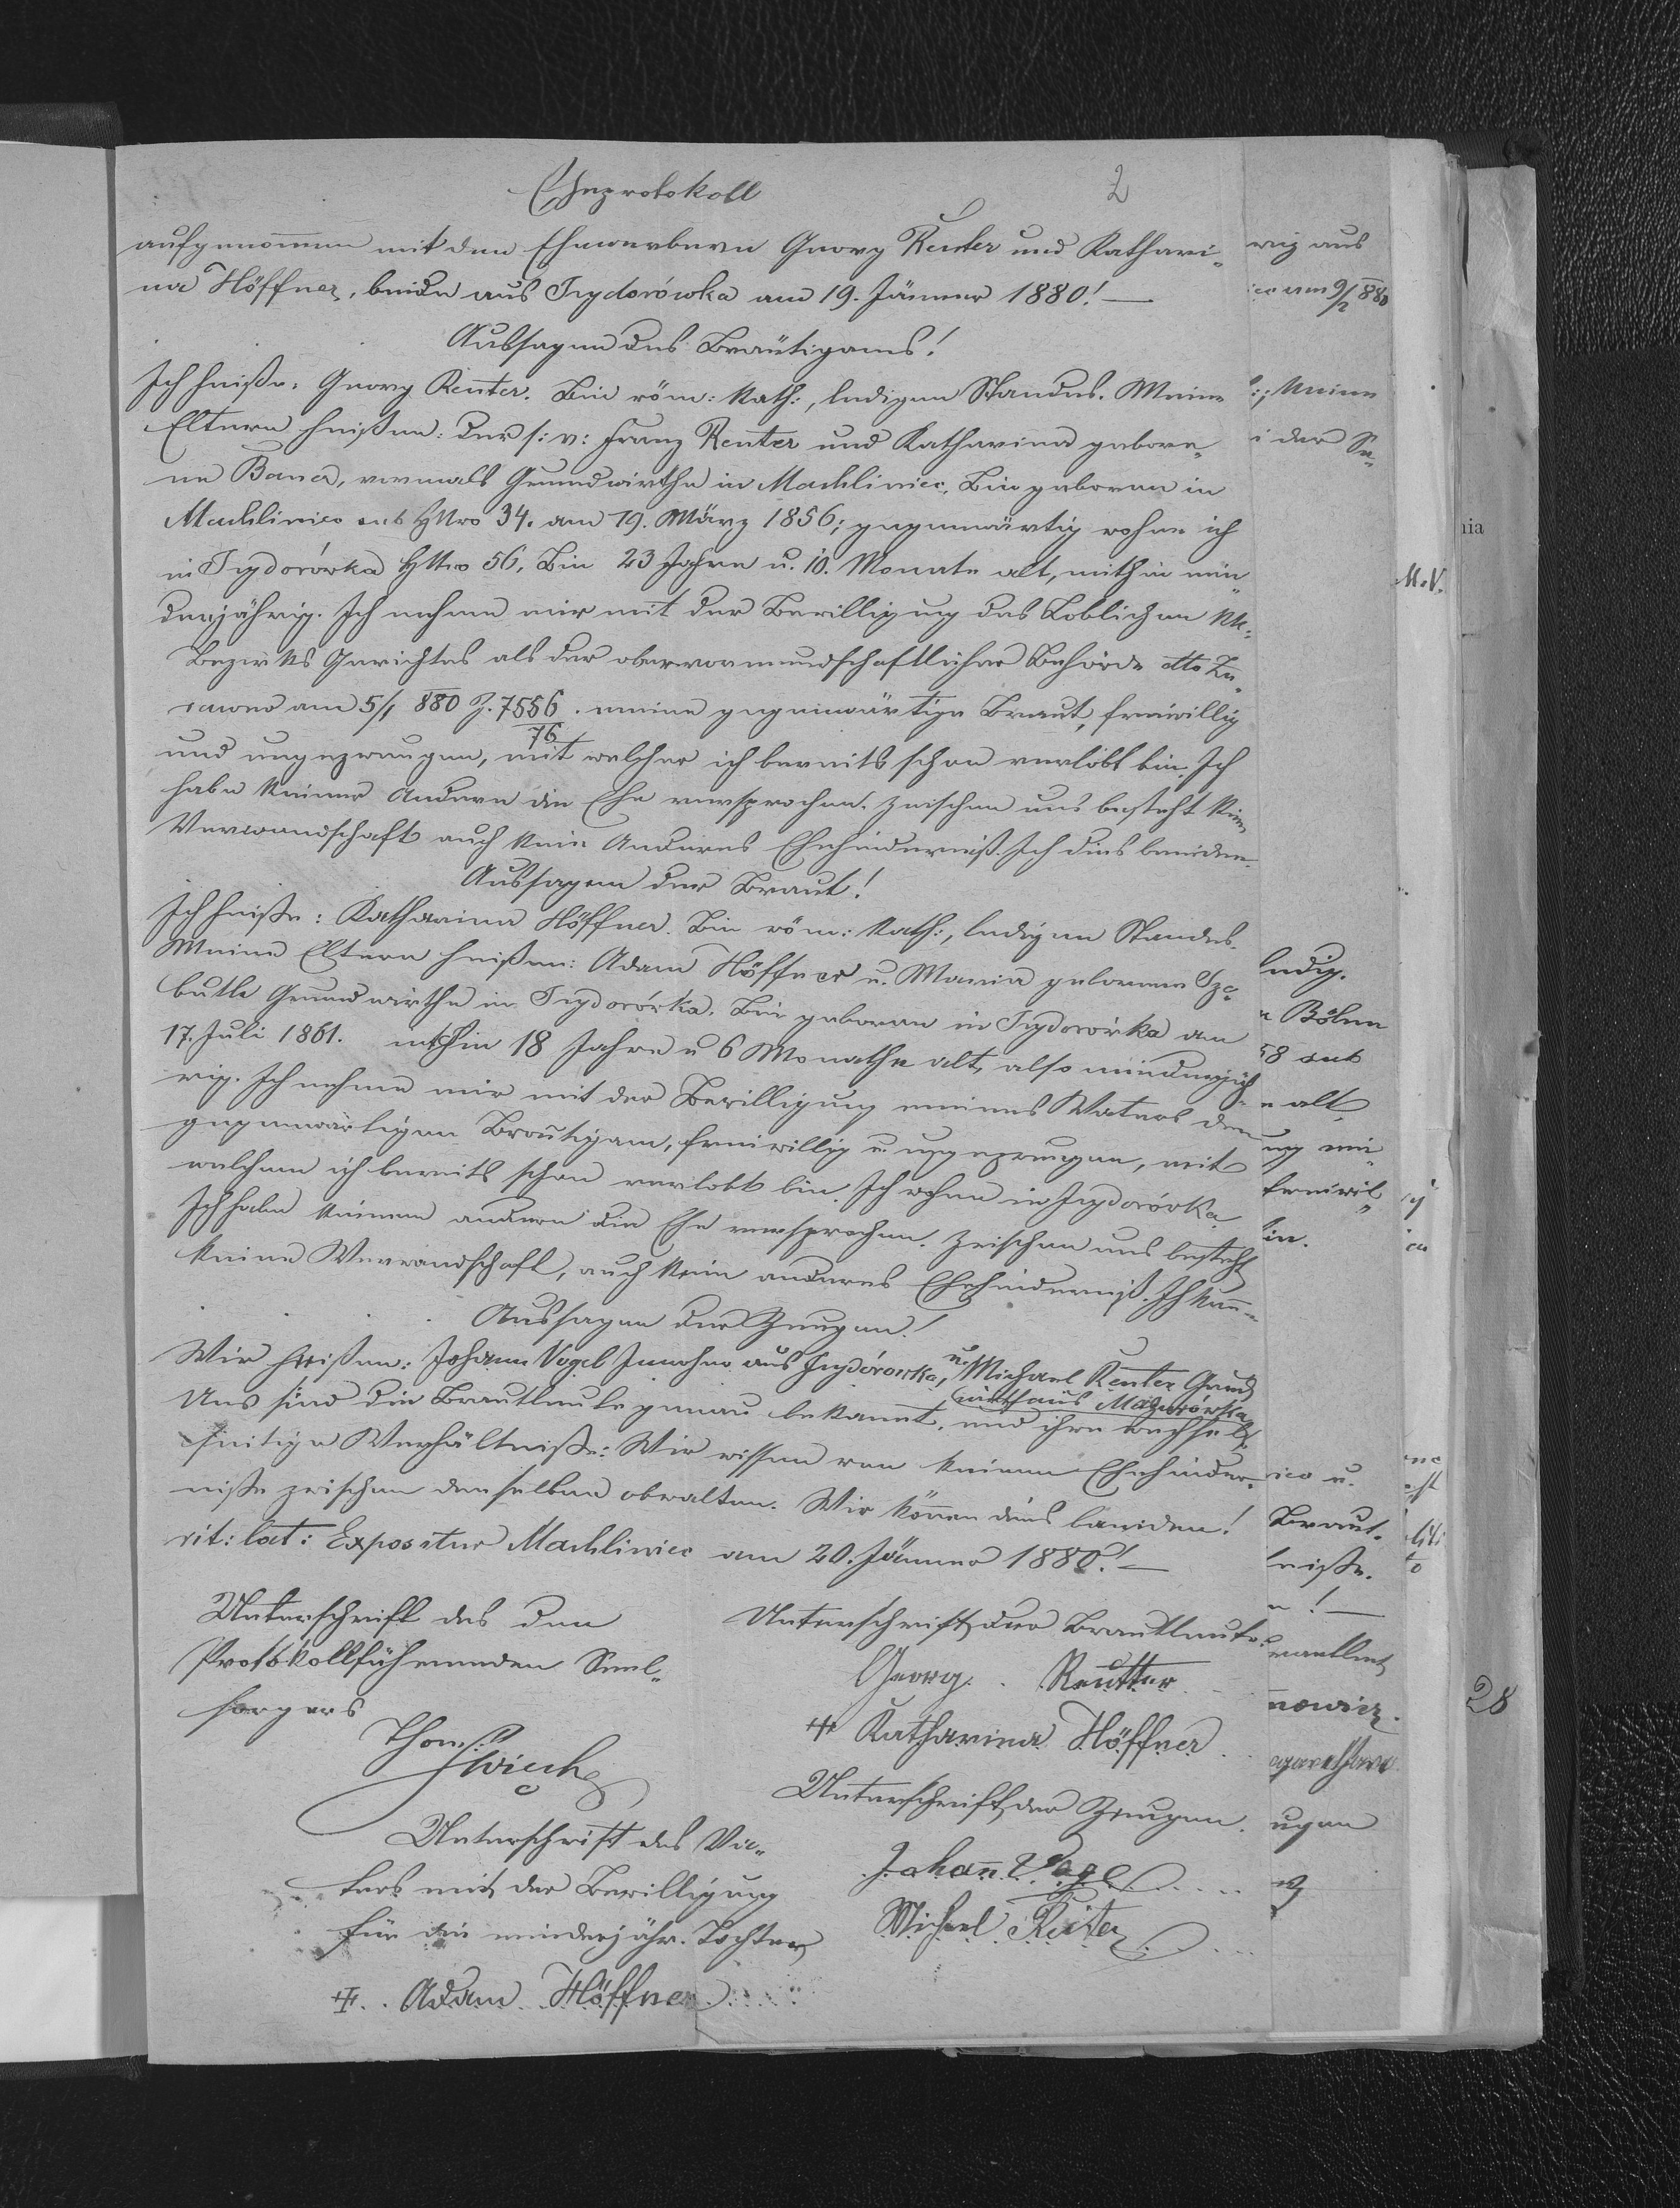 Eheprotokoll
2
aufgenommen mit den Ehewerbern Georg Reuter und Kathari„
na Höffner, beide aus Izydorówka am 19. Jänner 1880! —
Aussagen des Bräutigams!
Ich heiße: Georg Reuter. Bin röm: kath:, ledigen Standes. Meine
Eltern heißen: der s: v: Franz Reuter und Katharina gebore„
ne Bauer, vormals Grundwirthe in Machliniec. Bin geboren in
Machliniec sub HNro 34. am 19. März 1856; gegenwärtig wohne ich
in Izydorówka HNro 56. Bin 23 Jahre u. 10. Monate alt, mithin min„
derjährig. Ich nehme mir mit der Bewilligung des Löblichen kk.
Bezirks Gerichtes als der obervormundschaftlicher Behörde dto Zu„
rawno am 5/1 880 Z. 7556/76. meine gegenwärtige Braut, freiwillig
und ungezwungen, mit welcher ich bereits schon verlobt bin. Ich
habe keiner Andern die Ehe versprochen. Zwischen uns besteht keine
Verwandschaft auch kein Anderes Ehehinderniß. Ich dies beeiden.
Aussagen der Braut!
Ich heiße: Katharina Höffner. Bin röm: kath:, ledigen Standes.
Meine Eltern heißen: Adam Höffner u. Maria geborene
Grundwirthe in Izydorówka. Bin geboren in Izydorówka am
17. Juli 1861. mithin 18 Jahre u 6 Monathe alt, also minderjäh„
rig. Ich nehme mir mit der Bewilligung meines Vaters den
gegenwärtigen Bräutigam, freiwillig u. ungezwungen, mit
welchem ich bereits schon verlobt bin. Ich wohne in Izydorówka.
Ich habe keinem andern die Ehe versprochen. Zwischen uns besteht
keine Verwandschaft, auch kein anderes Ehehinderniß. Ich
Aussagen der Zeugen!
Wir heißen: Johann Vogel Inwohner aus Izydórowka, u. Michael Reuter Grund
wirth aus Mazurówka
Uns sind die Brautleute genau bekannt, und ihre wechsel
seitige Verhältniße: Wir wissen von keinem Ehehinder„
niße zwischen denselben obwalten. Wir können dies beeiden!
rit: lat: Expositur Machliniec am 20. Jänner 1880! —
Unterschrift des den
Protokollführenden Seel„
sorgers
Thom:
Unterschrift des Va„
ters mit der Bewilligung
für die minderjähr. Tochter
Adam Höffner
Unterschrift der Brautleute
Georg Reutter
Katharina Höffner
Unterschrift der Zeugen.
Johann Vogel
Michael Reiter
rig aus
am 9/2 880
Meine
der
ledig.
Böhm
58 sub
alt
freiwil„
bin.
u.
Braut.
niße.
28
nia
M.V.